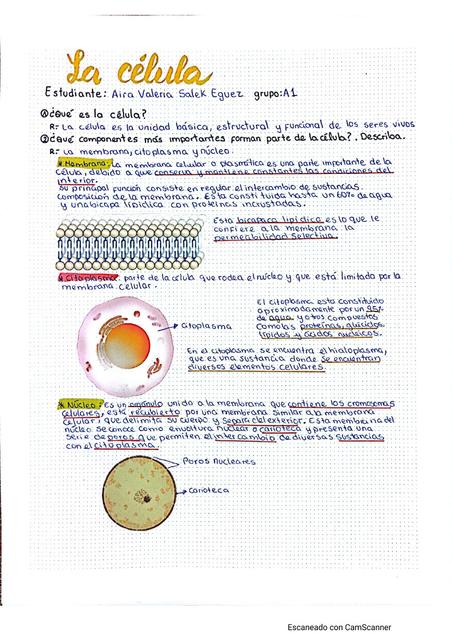 La célula
Estudiante: Aira Valeria Salek Eguez grupo: A1
① ¿Qué es la célula?
R= La célula es la unidad básica, estructural y funcional de los seres vivos
② ¿Qué componentes más importantes forman parte de la célula?. Describa.
R= La membrana, citoplasma y núcleo.
* Membrana: La membrana celular o plasmática es una parte importante de la
célula, debido a que conserva y mantiene constantes las condiciones del
interior.
Su principal función consiste en regular el intercambio de sustancias.
composición de la membrana. Está constituida hasta un 60% de agua
y una bicapa lipídica con proteínas incrustadas.
Esta bicapaca lipídica es lo que le
confiere a la membrana la
permeabilidad selectiva.
* Citoplasma: parte de la célula que rodea el núcleo y que está limitado por la
membrana celular.
Citoplasma
El citoplasma esta constituido
aproximadamente por un 85%
de agua, y otros compuestos
como las proteínas, glúcidos,
lípidos y ácidos nucleicos.
En el citoplasma se encuentra el hialoplasma,
que es una sustancia donde se encuentran
diversos elementos celulares.
* Núcleo: Es un orgánulo unido a la membrana que contiene los cromosomas
celulares, está recubierto por una membrana similar a la membrana
celular, que delimita su cuerpo y separa del exterior. Esta membrana del
núcleo se conoce como envoltura nuclear o carioteca y presenta una
serie de poros que permiten el intercambio de diversas sustancias
con el citoplasma.
Poros nucleares
Carioteca
Escaneado con CamScanner